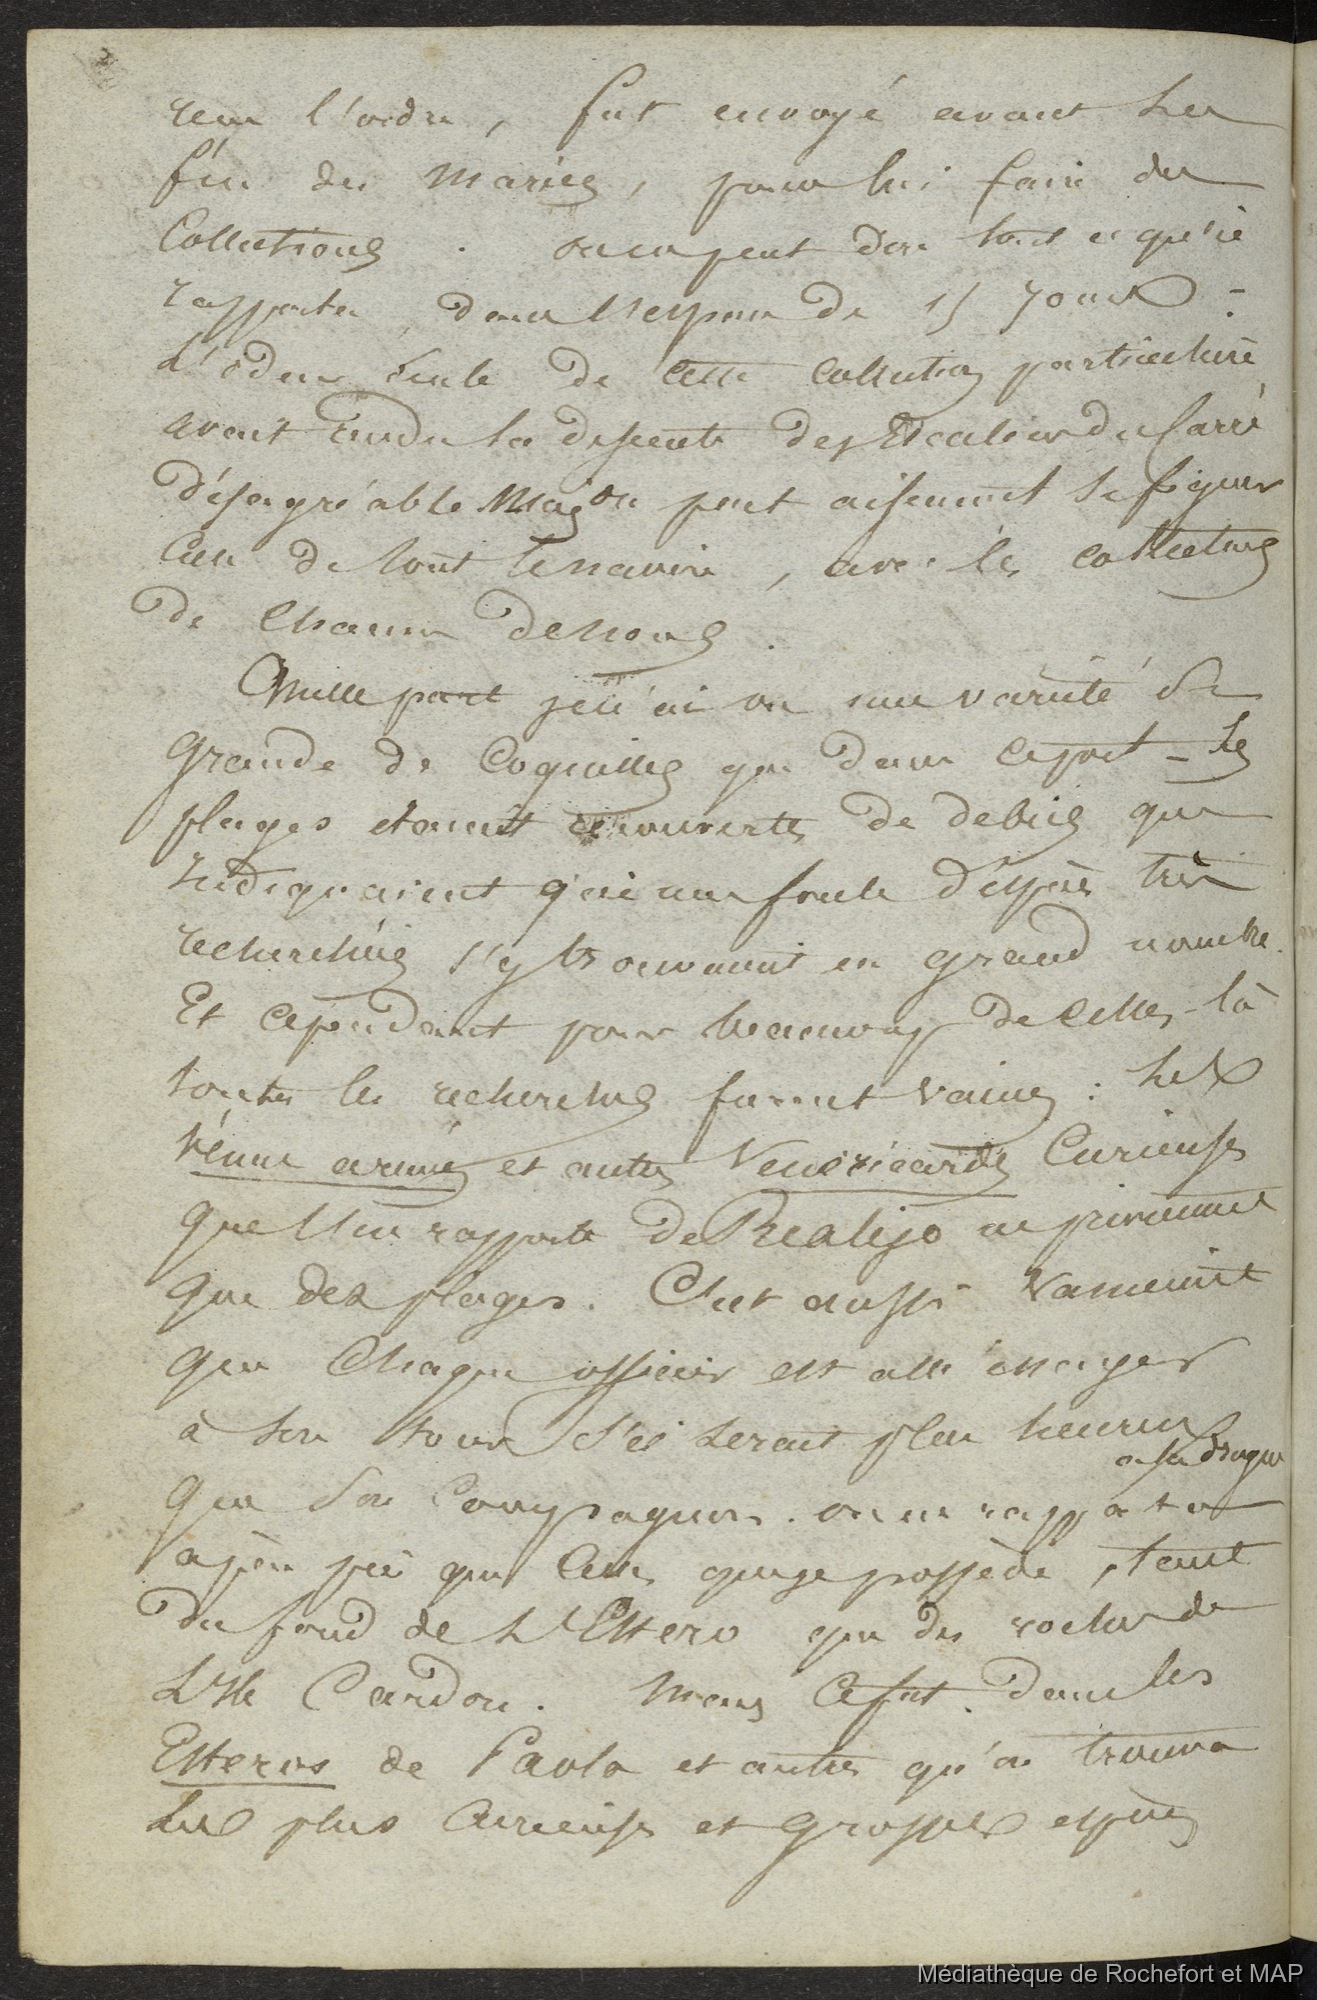 reçu l'ordre, fut envoyé avant la
fin des marées, pour lui faire des
Collections. on ne peut dire tout ce qu'il
rapporta, dans l'espace de 15 jours -
L'odeur seule de cette collection particulière
avait rendu la descente des Escaliers du Carré
désagréable Mais on peut aisément se figurer
Celle de tout le navire, avec les collections
de Chacun de nous.
Nulle part je n'ai vu une variété si
grande de Coquilles que dans ce port - les
plages étaient couvertes de débris qui
indiquaient qu'une foule d'espèces très
recherchées s'y trouvaient en grand nombre.
Et cependant pour beaucoup de celles-là
toutes les recherches furent vaines : les
Vénus armée et autres Vénéricardes Curieuses
que l'on rapporta de Realejo ne provinrent
que des plages. C'est aussi vainement
que Chaque officier est allé essayer
à son tour s'il serait plus heureux
a la drague
que son Compagnon. on ne rapporta
à peu près que Celles que je possède, tant
du fond de L'Estero que des roches de
L'Ile Cardon. Mais Ce fut dans les
Esteros de Paolo et autres qu'on trouva
Les plus Curieuses et grosses espèces
Médiathèque de Rochefort et MAP